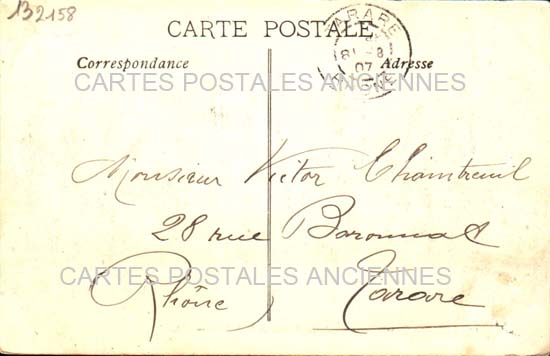 132158
CARTE POSTALE
TARARE
8-8
07
RHONE
Correspondance Adresse
CARTES POSTALES ANCIENNES
Monsieur Victor Chamtreuil
28 rue Baronnat
CARTES POSTALES ANCIENNES
Rhône) Tarare